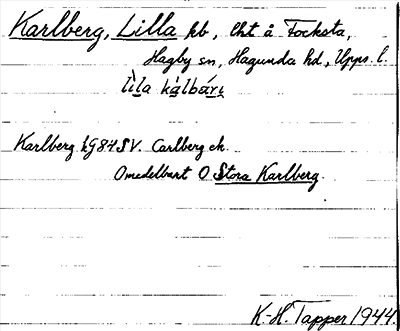 Karlberg, Lilla hb, lht å Focksta,
Hagby sn, Hagunda hd, Upps. l.
lìla kàlbárị
Karlberg hG84SV. Carlberg ek.
Omedelbart O Stora Karlberg.
K.-H. Tapper 1944.